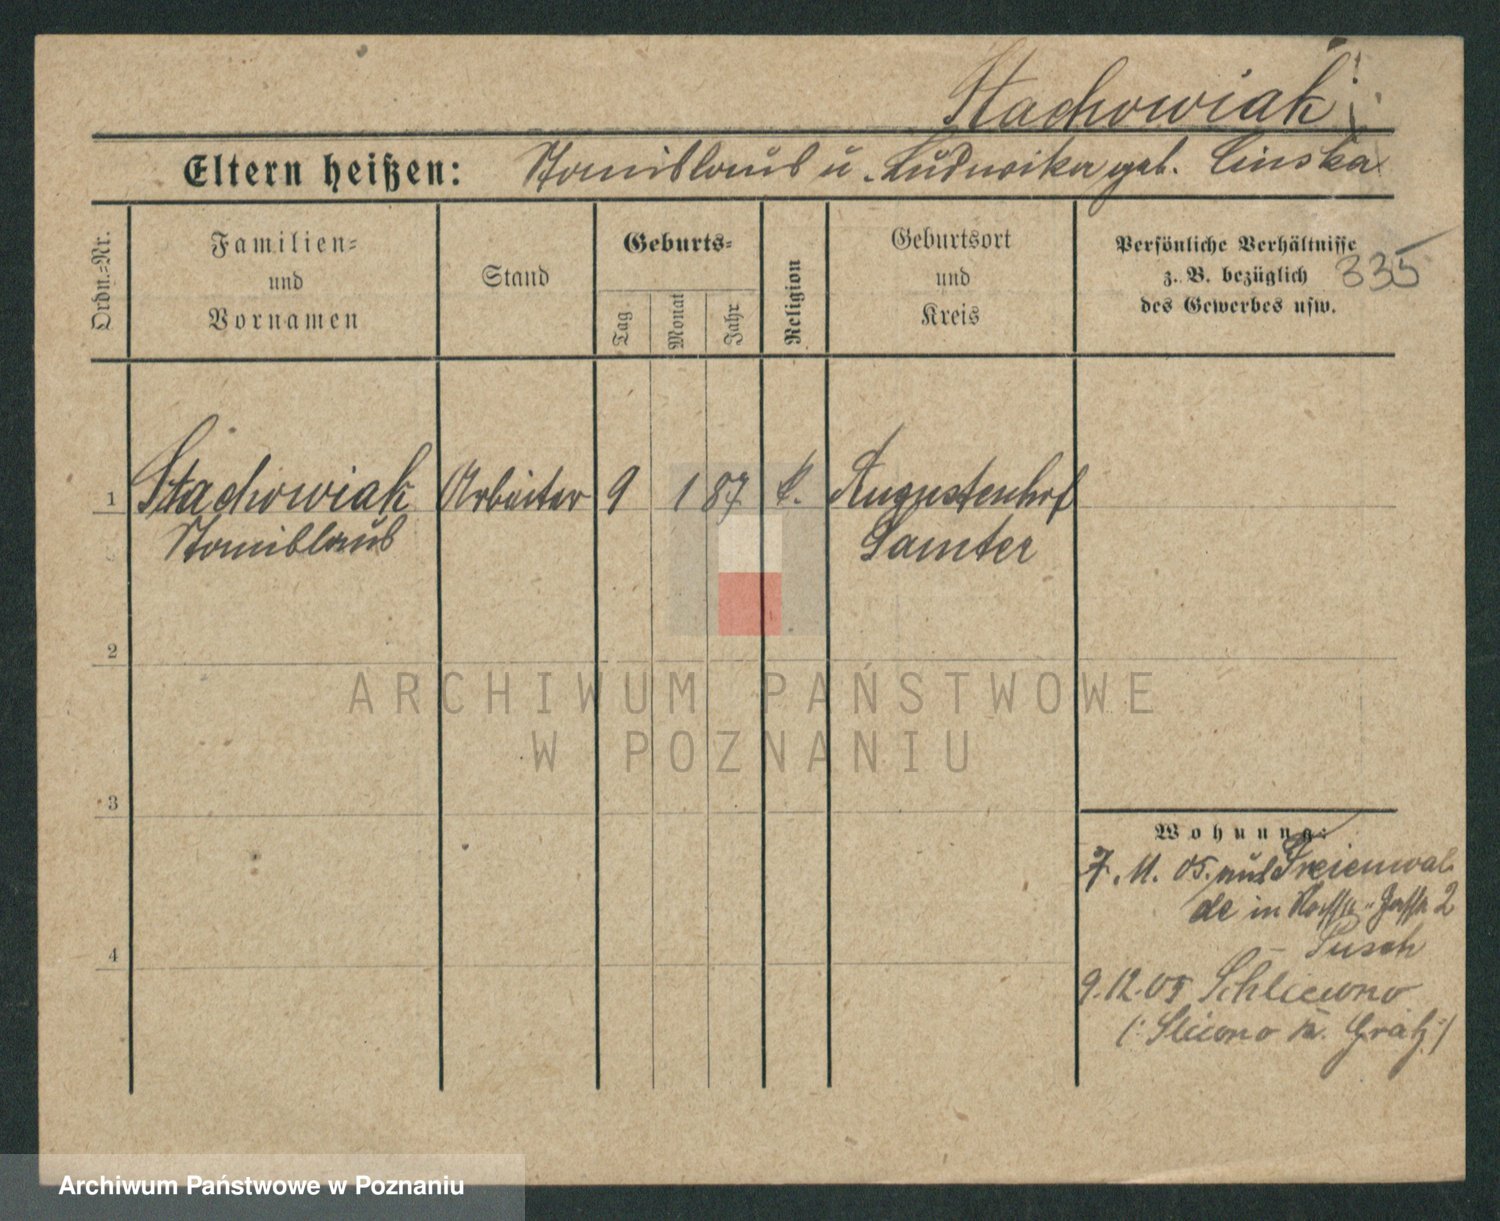 Stachowiak
Eltern heißen: Stanislaus u. Ludwika geb. Linska
Ordn.-Nr.
Familien-
und
Vornamen
Stand
Geburts-
Tag
Monat
Jahr
Religion
Geburtsort
und
Kreis
Persönliche Verhältnisse
z. B. bezüglich
des Gewerbes usw.
335
1 Stachowiak Arbeiter 9 1 87 k. Augustenhof
Stanislaus Samter
2
ARCHIWUM PAŃSTWOWE
W POZNANIU
3
Wohnung:
7. 11. 05. aus Freienwal
de in 2
Pusch
9.12.05 Schliewno
(: Sliwno Kr. Grätz :)
4
Archiwum Państwowe w Poznaniu